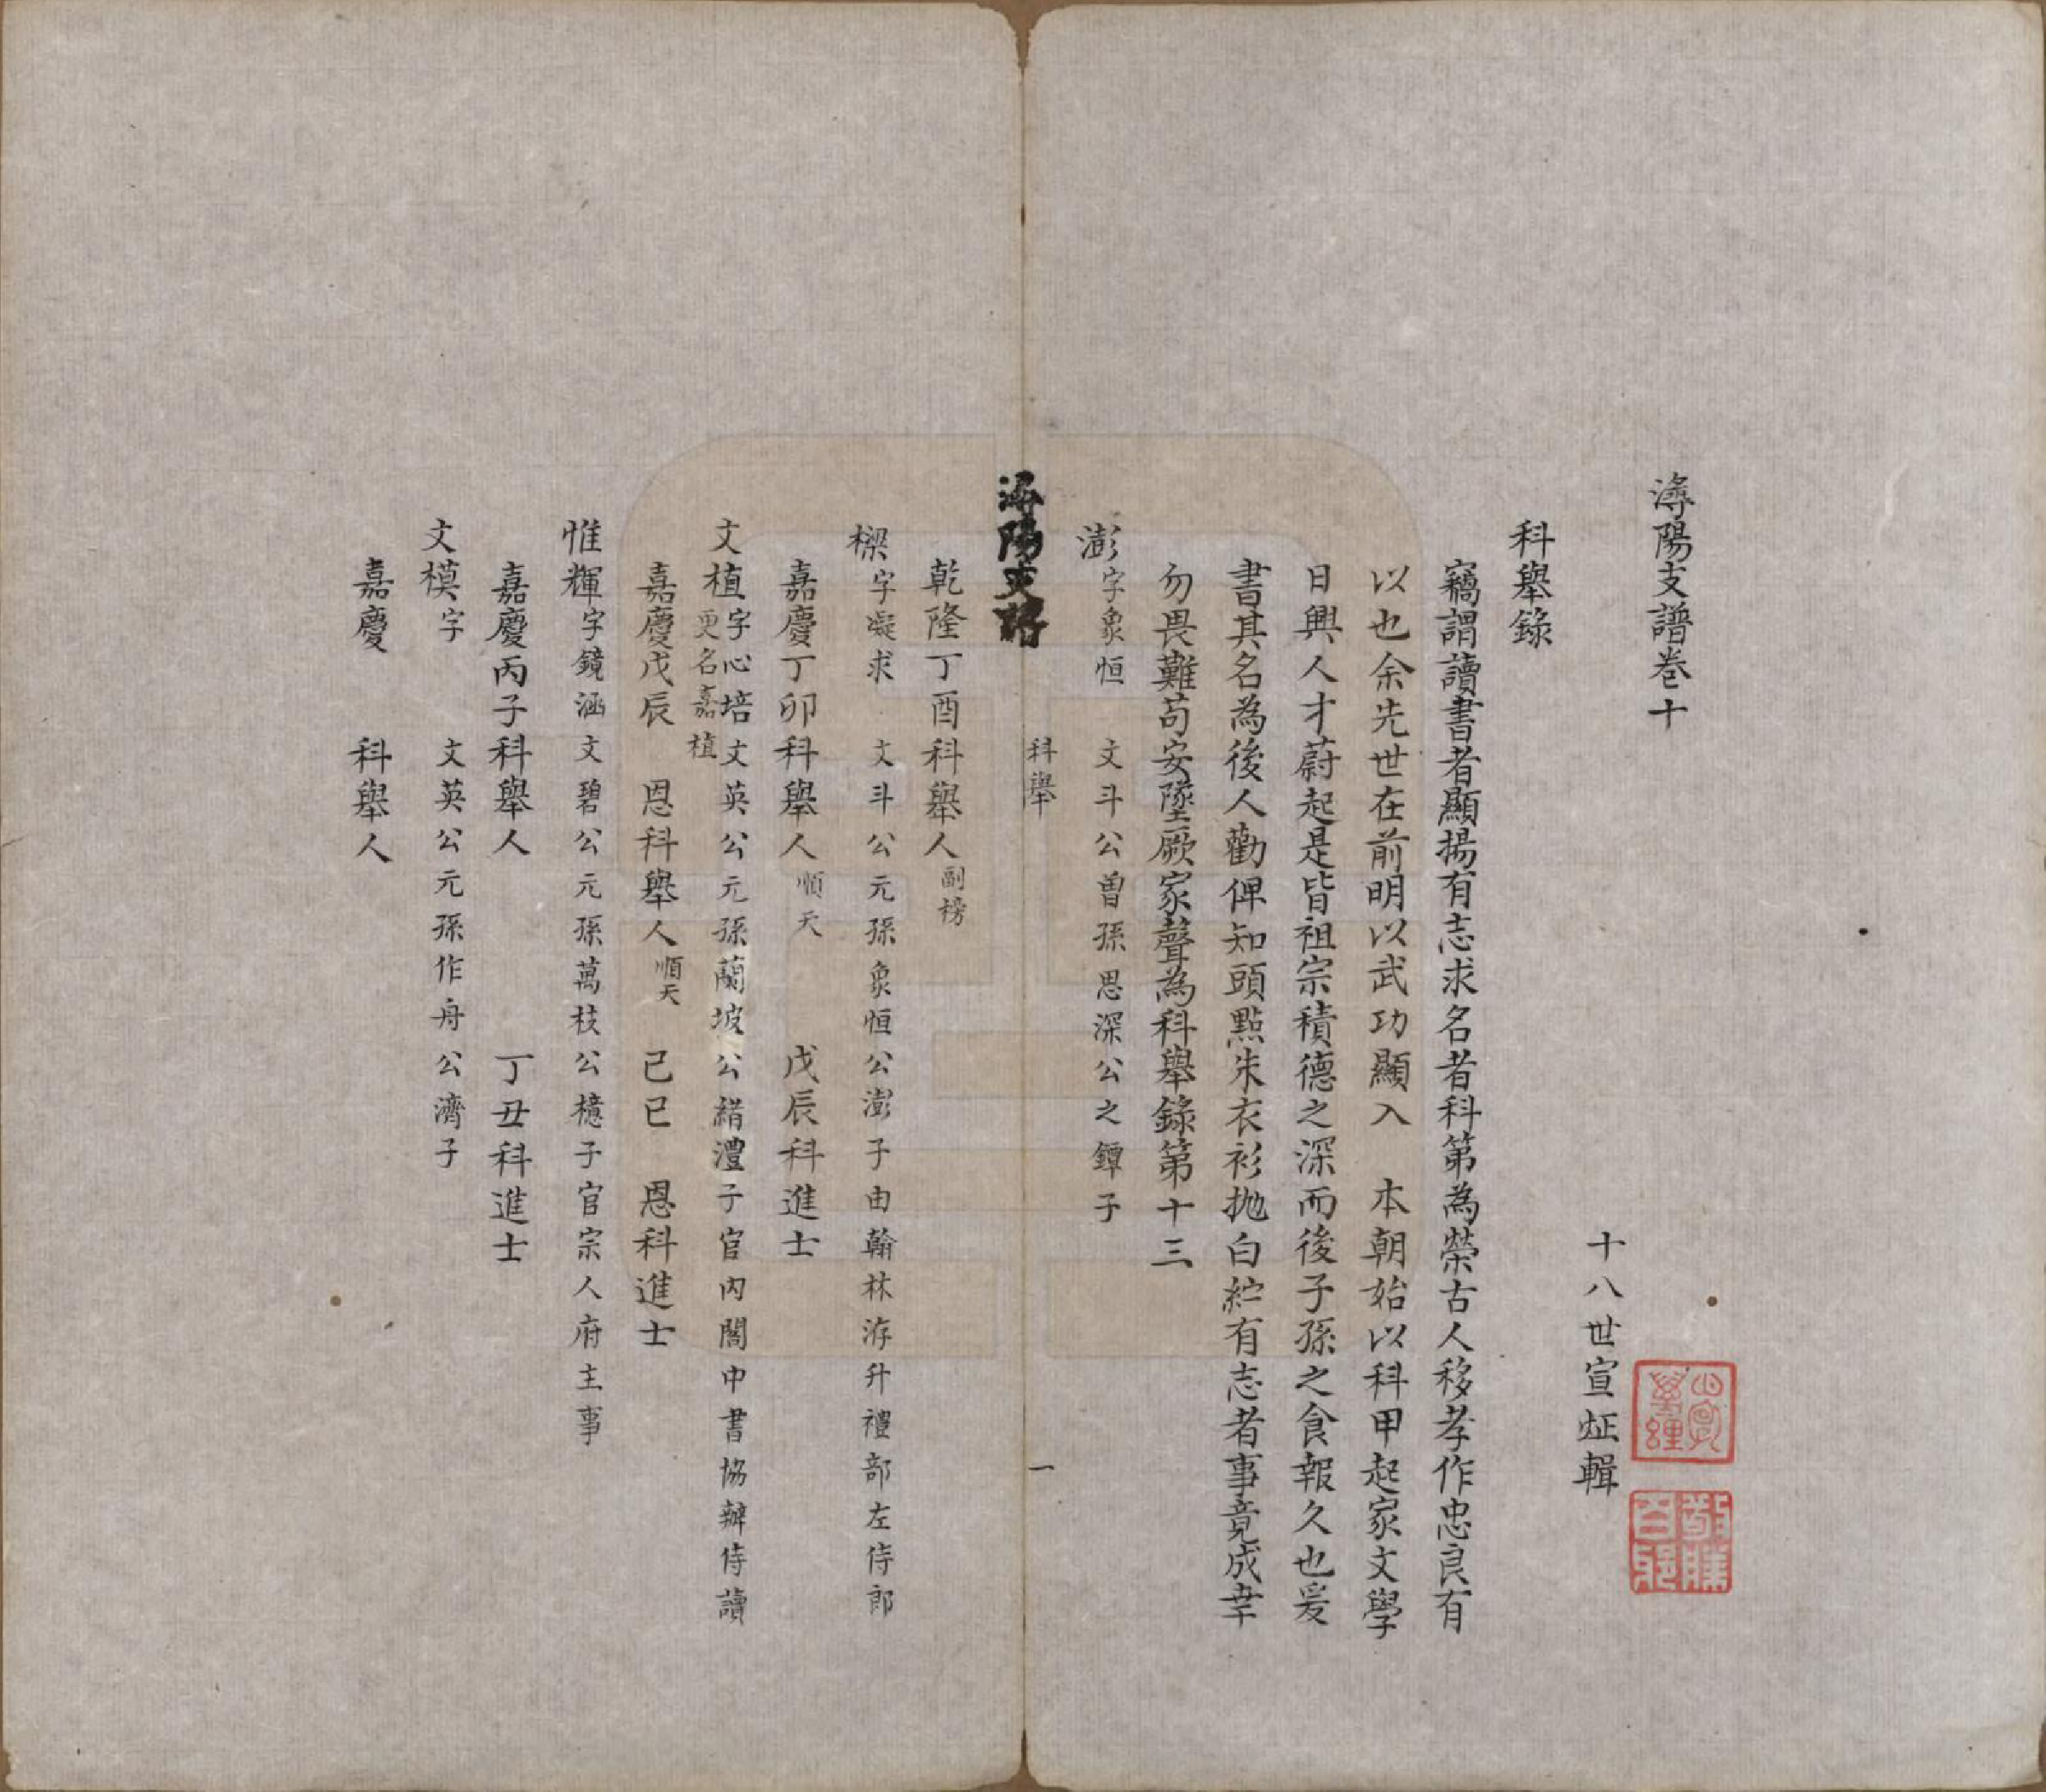 潯陽支譜卷十
十八世宣炡輯
科舉錄
竊謂讀書者顯揚有志求名者科第為榮古人移孝作忠良有
以也余先世在前明以武功顯入 本朝始以科甲起家文學
日興人才蔚起是皆祖宗積德之深而後子孫之食報久也爰
書其名為後人勸俾知頭點朱衣衫拋白紵有志者事竟成幸
勿畏難苟安墜厥家聲為科舉錄第十三
澎字象恒 文斗公曾孫思深公之鐔子
潯陽支譜 科舉 一
乾隆丁酉科舉人副榜
樑字凝求 文斗公元孫象恒公澎子由翰林洊升禮部左侍郎
嘉慶丁卯科舉人順天 戊辰科進士
文植字心培更名嘉植 文英公元孫蘭坡公緒澧子官內閣中書協辦侍讀
嘉慶戊辰 恩科舉人順天 己巳 恩科進士
惟輝字鏡涵 文碧公元孫萬枝公檍子官宗人府主事
嘉慶丙子科舉人 丁丑科進士
文模字 文英公元孫作舟公濟子
嘉慶 科舉人